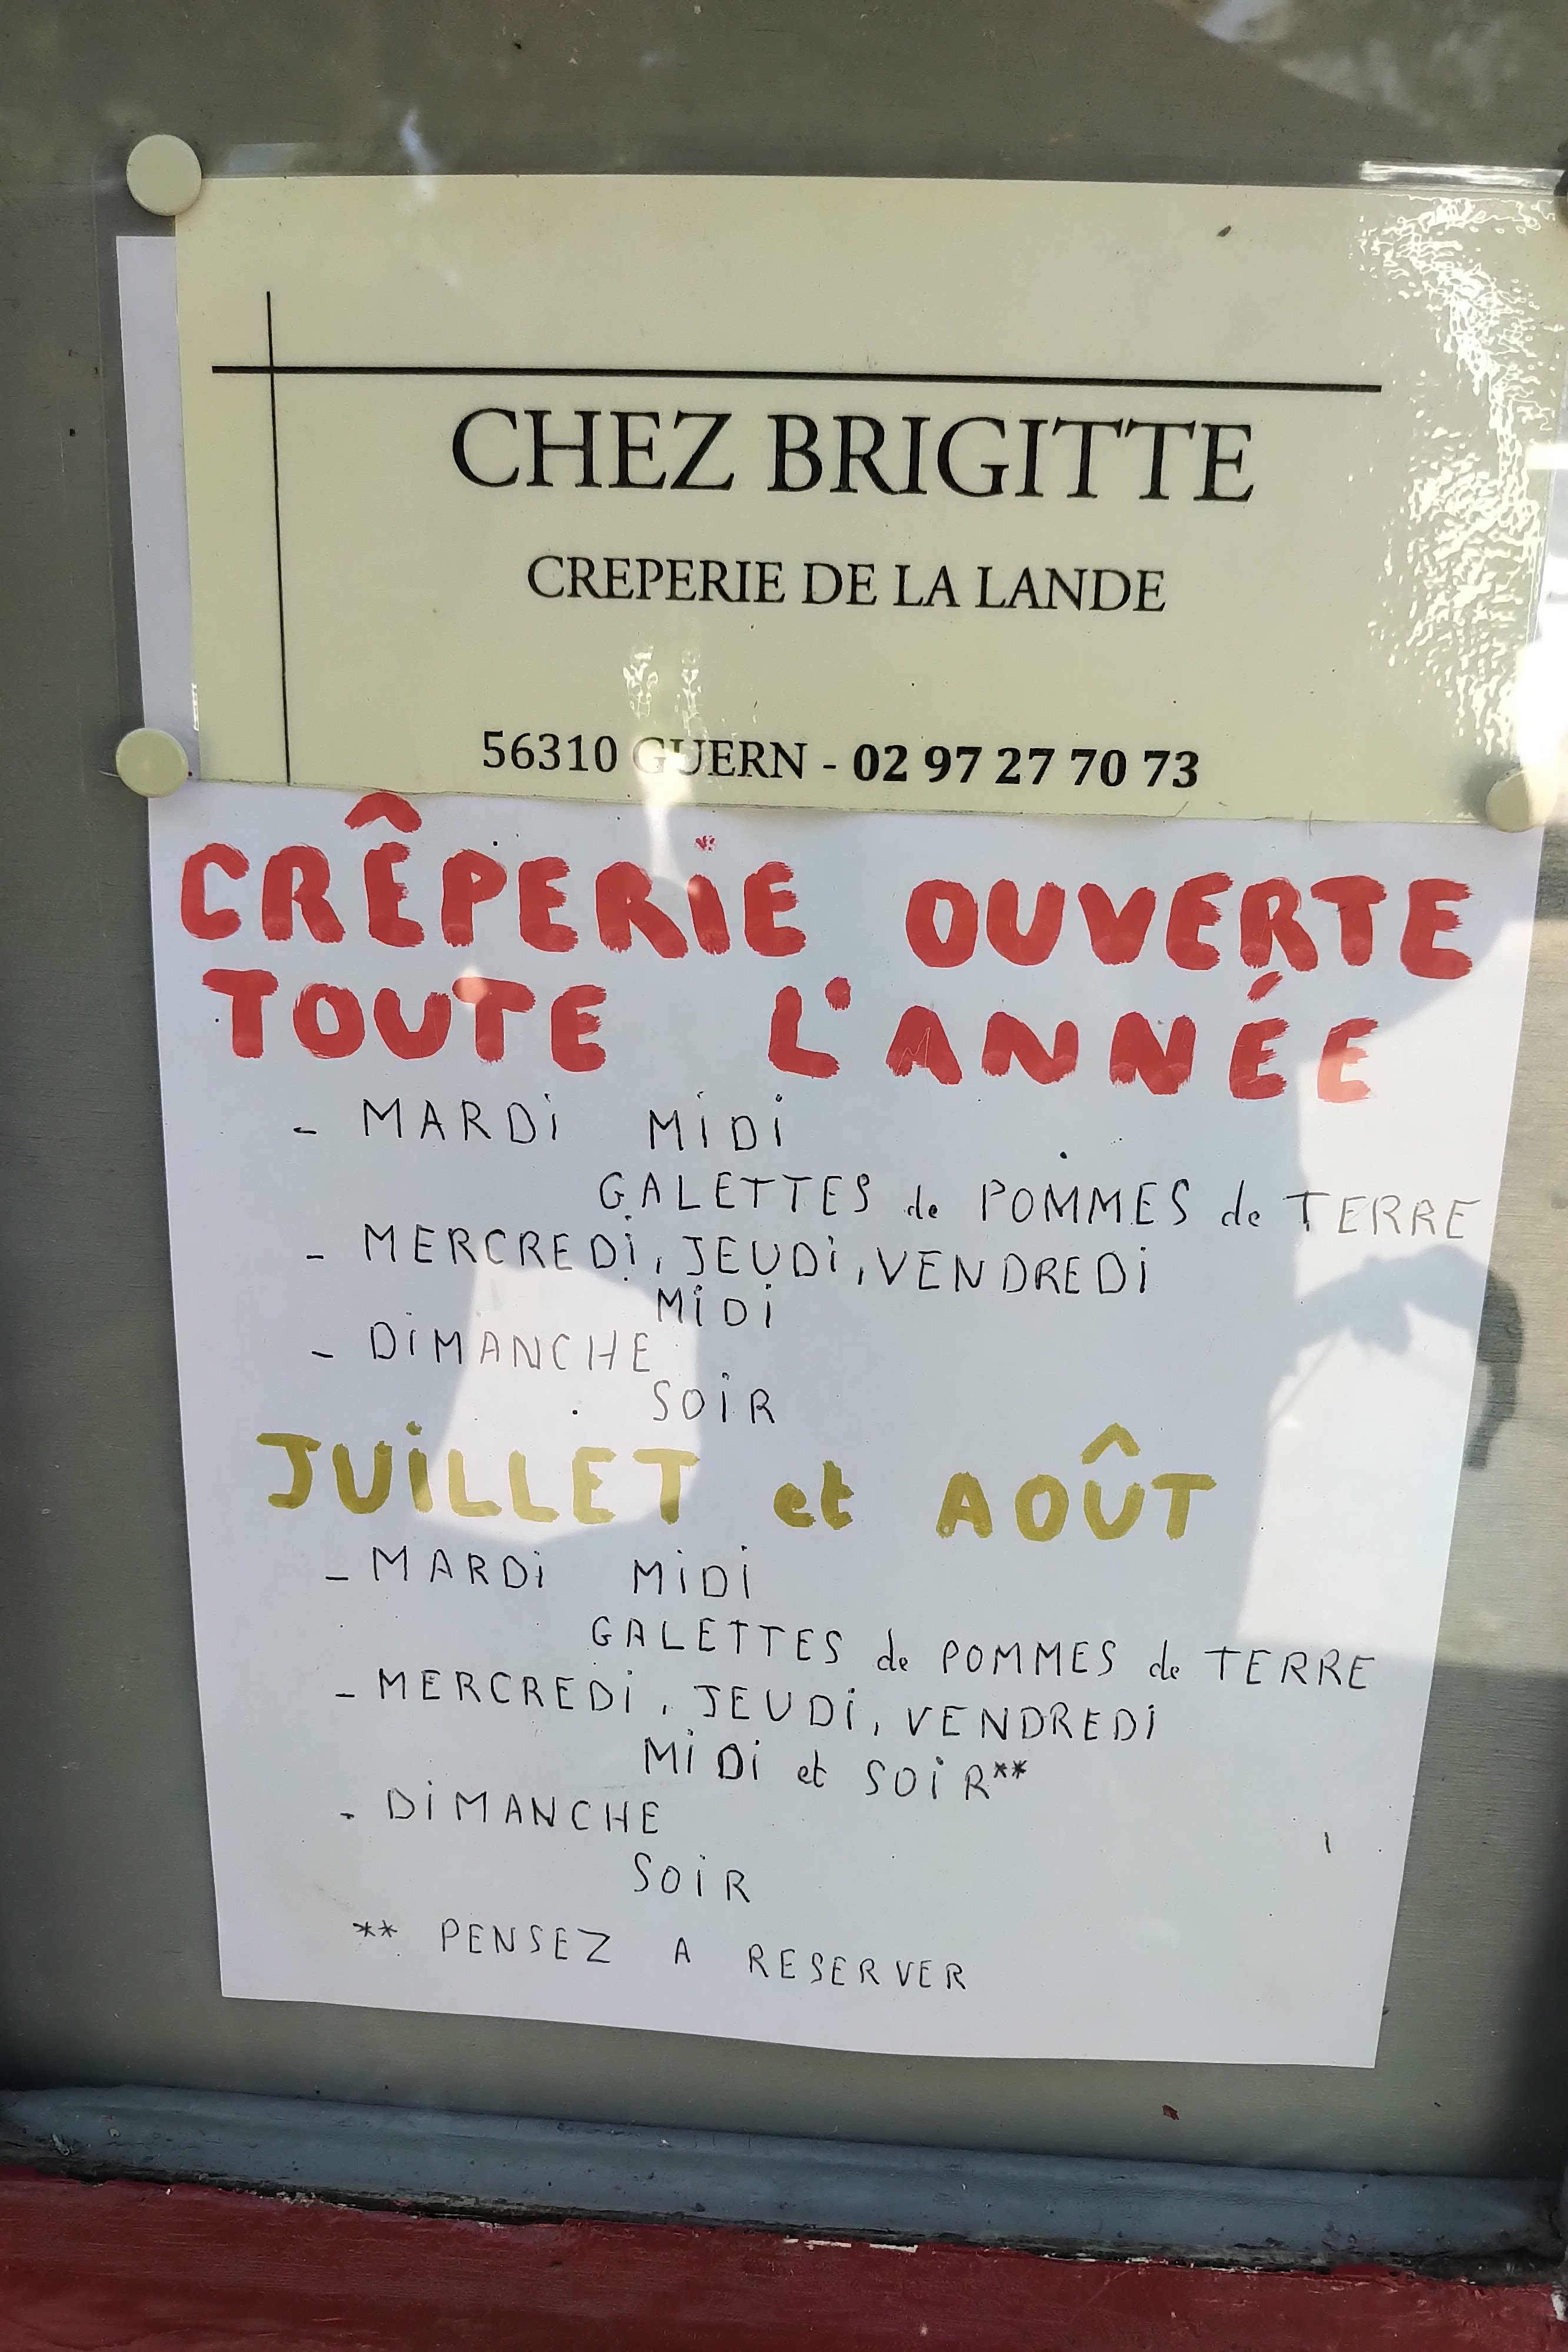 CHEZ BRIGITTE
CREPERIE DE LA LANDE
56310 GUERN - 02 97 27 70 73
CRÊPERiE OUVERTE
TOUTE L'ANNÉE
- MARDi MiDi
GALETTES de POMMES de TERRE
- MERCREDi, JEUDi, VENDREDi
MiDi
- DiMANCHE
SOiR
JUiLLET et AOÛT
- MARDi MiDi
GALETTES de POMMES de TERRE
- MERCREDi, JEUDi, VENDREDi
MiDi et SOiR**
- DiMANCHE
SOiR
** PENSEZ A RESERVER